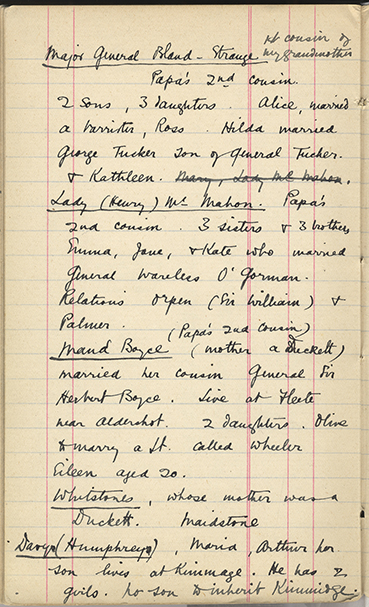 Major General Bland-Strange 1st cousin of
my grandmother
Papa's 2nd cousin.
2 Sons, 3 Daughters. Alice, married
a barrister, Ross. Hilda married
George Tucker son of General Tucker.
& Kathleen. Mary, Lady Mc Mahon.
Lady (Henry) Mc Mahon. Papa's
2nd cousin. 3 sisters & 3 brothers
Emma, Jane, & Kate who married
General Wareless O'Gorman.
Relations Orpen (Sir William) &
Palmer.
(Papa's 2nd cousin)
Maud Boyce (mother a Duckett)
married her cousin General Sir
Herbert Boyce. Live at Fleete
near Aldershot. 2 daughters. Olive
to marry a Lt. called Wheeler
Eileen aged 20.
Whitstones, whose mother was a
Duckett. Maidstone
Davys (Humphreys), Maria, Arthur her
son lives at Kinmage. He has 2
girls. No son to inherit Kinmidge.